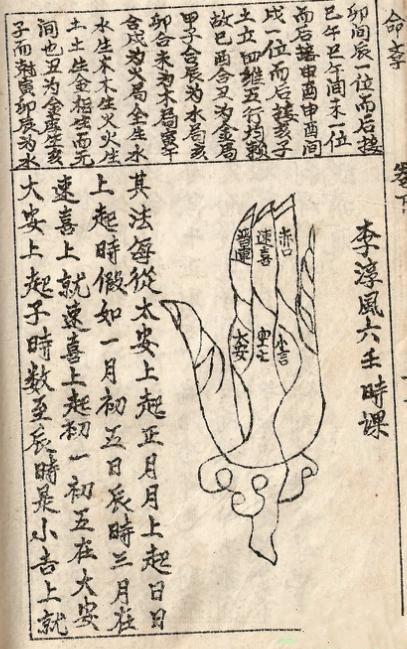 命
卷下
卯间辰一位而后接
巳午巳午间未一位
而后接申酉申酉间
戌一位而后接亥子
土立四维五行均
故巳酉合丑为金局
子合辰为水局亥
卯合未为木局寅午
合戌为火局金生水
水生木木生火火生
土土生金相生而无
间也丑为金库生亥
子而射寅卯辰为水
李淳風六壬時課
赤口
速喜
連
小吉
空亡
大安
其法每從太安上起正月月上起日日
上起時假如一月初五日辰時三月在
速喜上就速喜上起初一初五在大安
大安上起子時数至辰時是小吉上就